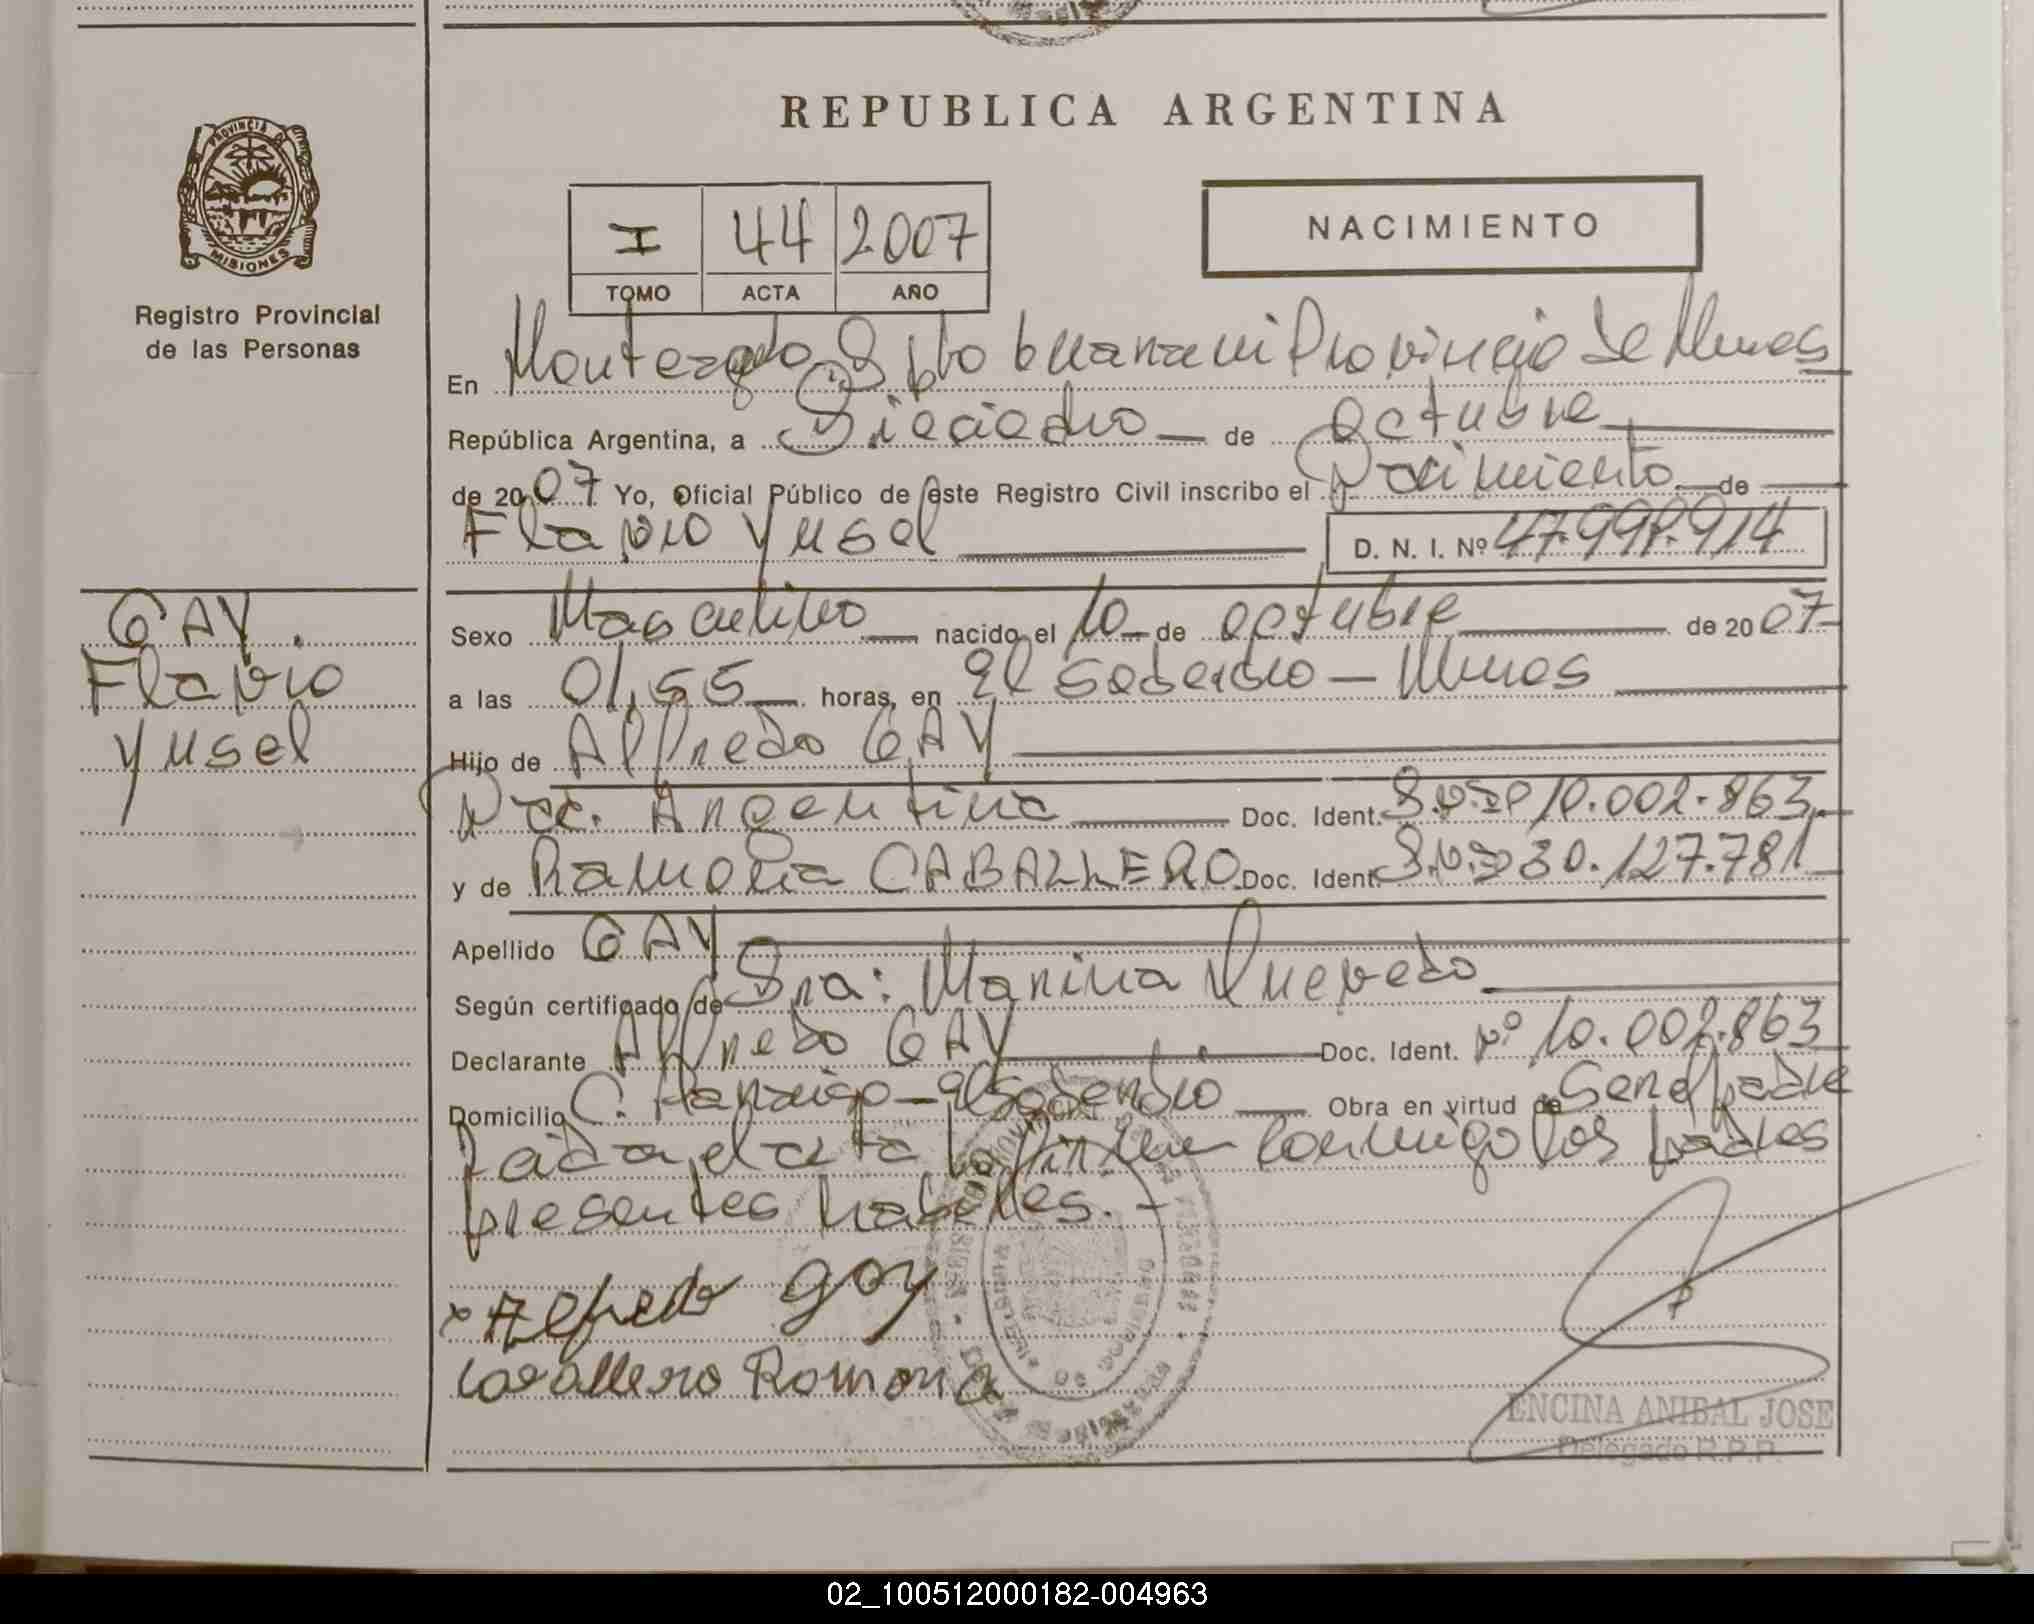 REPUBLICA ARGENTINA
PROVINCIA DE
MISIONES
Registro Provincial
de las Personas
I 44 2007
TOMO ACTA AÑO
NACIMIENTO
En Monteagudo Dpto Guarani Provincia de Mnes
República Argentina, a Dieciocho de octubre
de 2007 Yo, Oficial Público de este Registro Civil inscribo el Nacimiento de
Flavio Yusel D. N. I. Nº 47.998.914
GAY.
Flavio
Yusel
Sexo Masculino nacido el 10 de octubre de 2007
a las 01,55 horas, en El Soberbio - Mnes
Hijo de Alfredo GAY
Nac. Argentina Doc. Ident. 10.002.863
y de Ramona CABALLERO Doc. Ident. 30.127.781
Apellido GAY
Según certificado de Sra: Marina Quevedo
Declarante Alfredo GAY Doc. Ident. Nº 10.002.863
Domicilio C. - El Soberbio Obra en virtud de ser el padre
Leida el acta la firman conmigo los padres
presentes habiles. -
x Alfredo gay
Cavallero Romona
ENCINA ANIBAL JOSE
Delegado R.P.P.
02_100512000182-004963